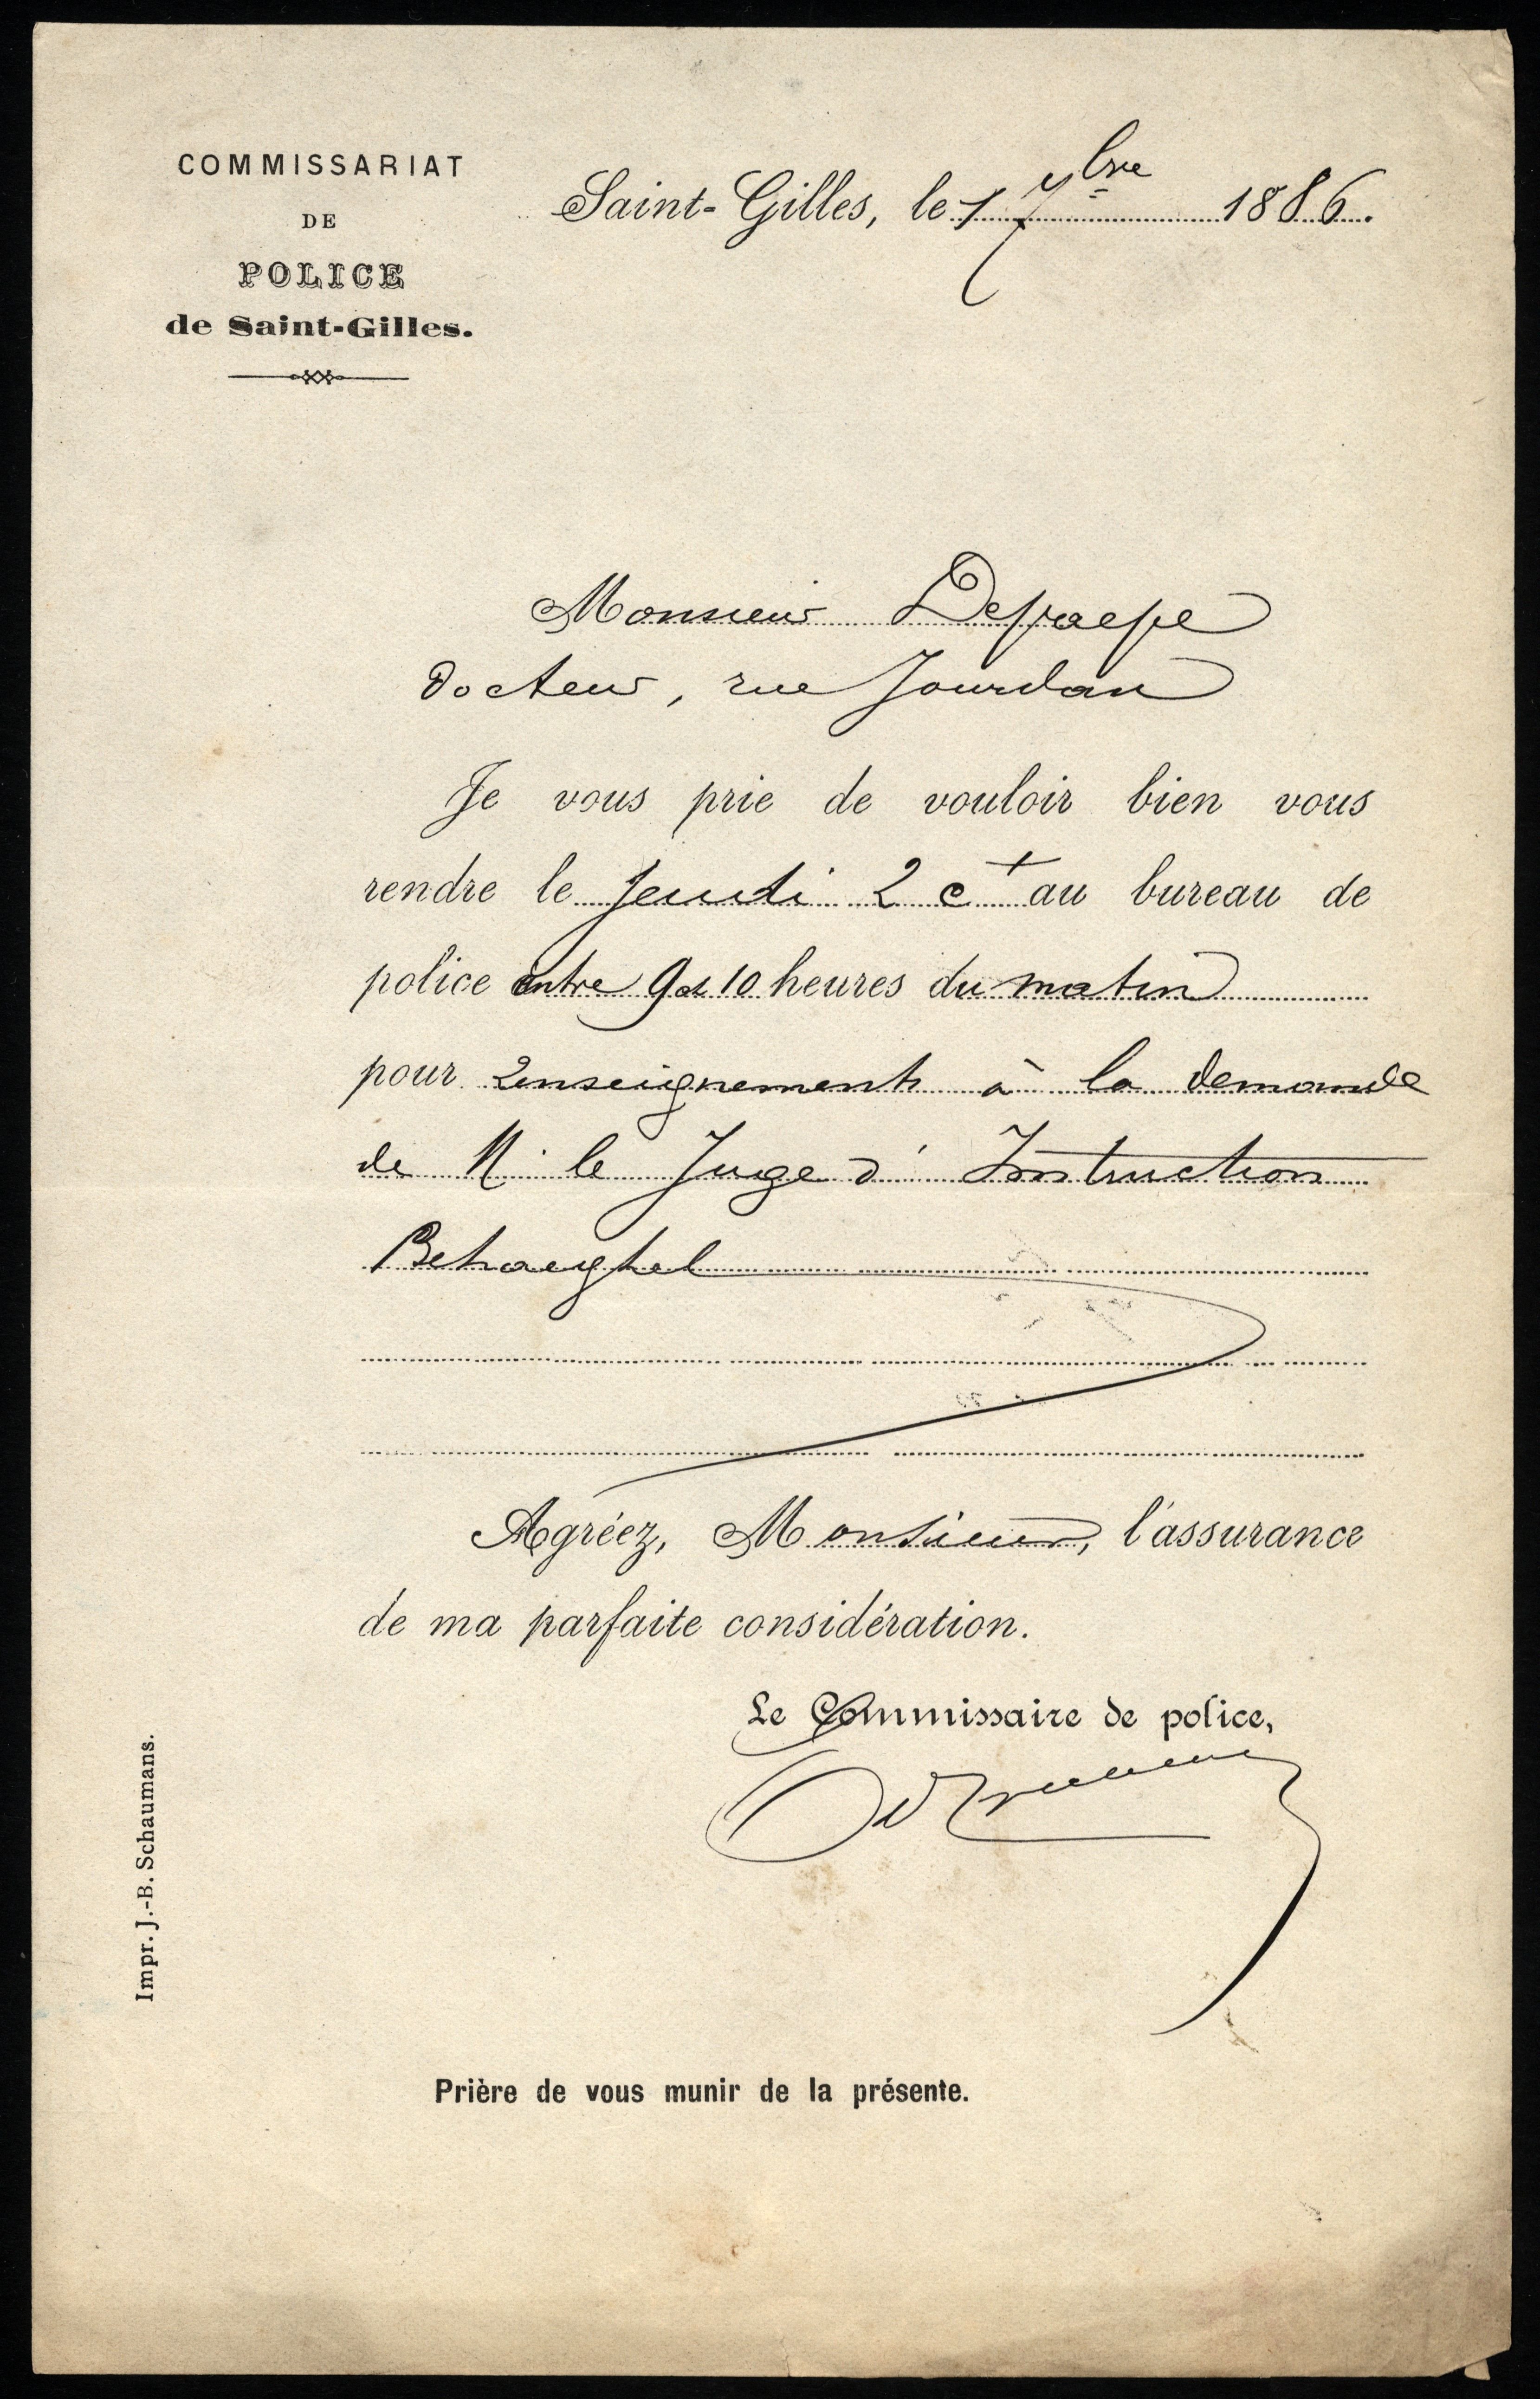 COMMISSARIAT
DE
POLICE
de Saint-Gilles.
Saint-Gilles, le 1 7bre 1886.
Monsieur Depaepe
Docteur, rue Jourdan
Je vous prie de vouloir bien vous
rendre le Jeudi 2 ct au bureau de
police entre 9 et 10 heures du matin
pour Renseignements à la demande
de M. le Juge d'Instruction
Behaeghel
Agréez, Monsieur, l'assurance
de ma parfaite considération.
Le Commissaire de police,
Prière de vous munir de la présente.
Impr. J.-B. Schaumans.